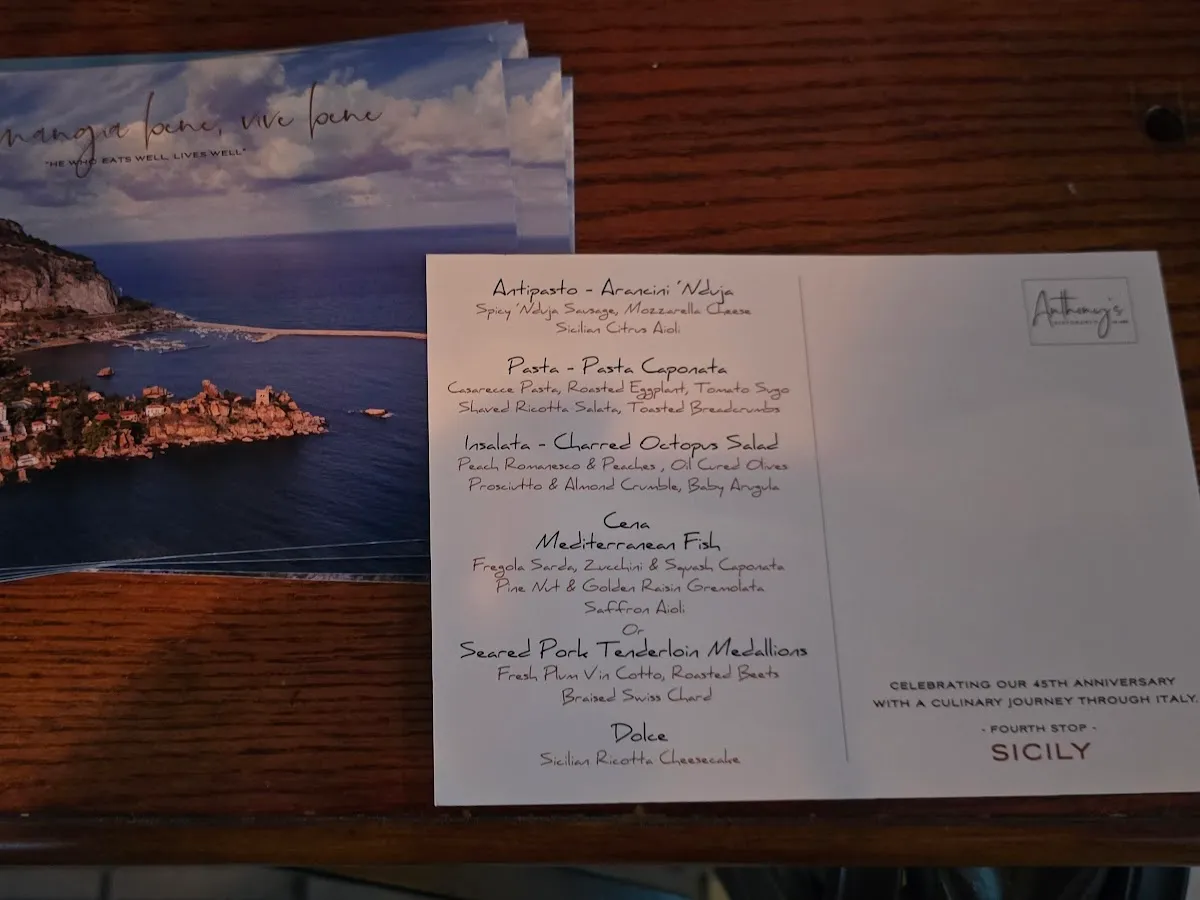 mangia bene, vive bene
"HE WHO EATS WELL, LIVES WELL"
Antipasto - Arancini 'Nduja
Spicy 'Nduja Sausage, Mozzarella Cheese
Sicilian Citrus Aioli
Pasta - Pasta Caponata
Casarecce Pasta, Roasted Eggplant, Tomato Sugo
Shaved Ricotta Salata, Toasted Breadcrumbs
Insalata - Charred Octopus Salad
Peach Romanesco & Peaches , Oil Cured Olives
Prosciutto & Almond Crumble, Baby Arugula
Cena
Mediterranean Fish
Fregola Sarda, Zucchini & Squash Caponata
Pine Nut & Golden Raisin Gremolata
Saffron Aioli
Or
Seared Pork Tenderloin Medallions
Fresh Plum Vin Cotto, Roasted Beets
Braised Swiss Chard
Dolce
Sicilian Ricotta Cheesecake
Anthony's
CELEBRATING OUR 45TH ANNIVERSARY
WITH A CULINARY JOURNEY THROUGH ITALY.
- FOURTH STOP -
SICILY